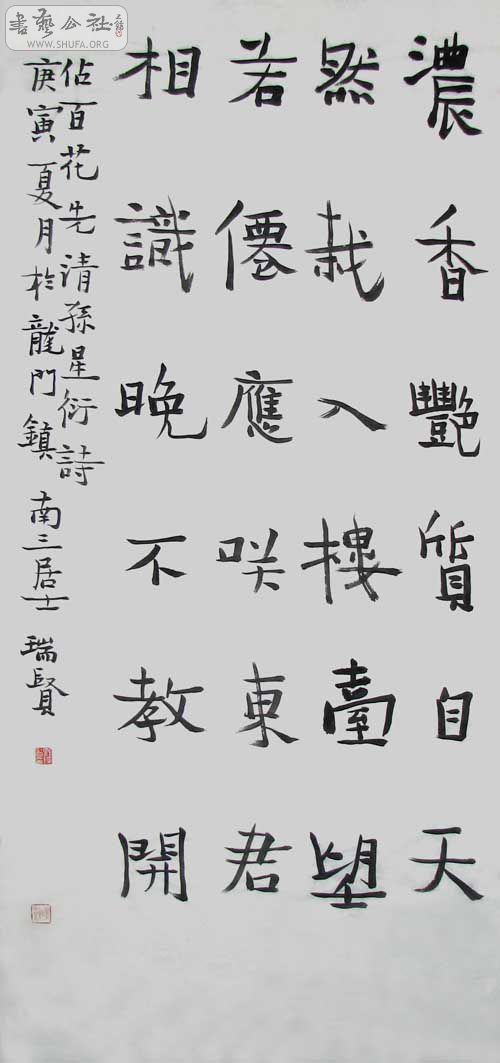 書藝公社
WWW.SHUFA.ORG
濃香艷質自天
然栽入樓臺望
若僊應咲東君
相識晚不教開
佔百花先清孫星衍詩
庚寅夏月於龍門鎮南三居士瑞賢